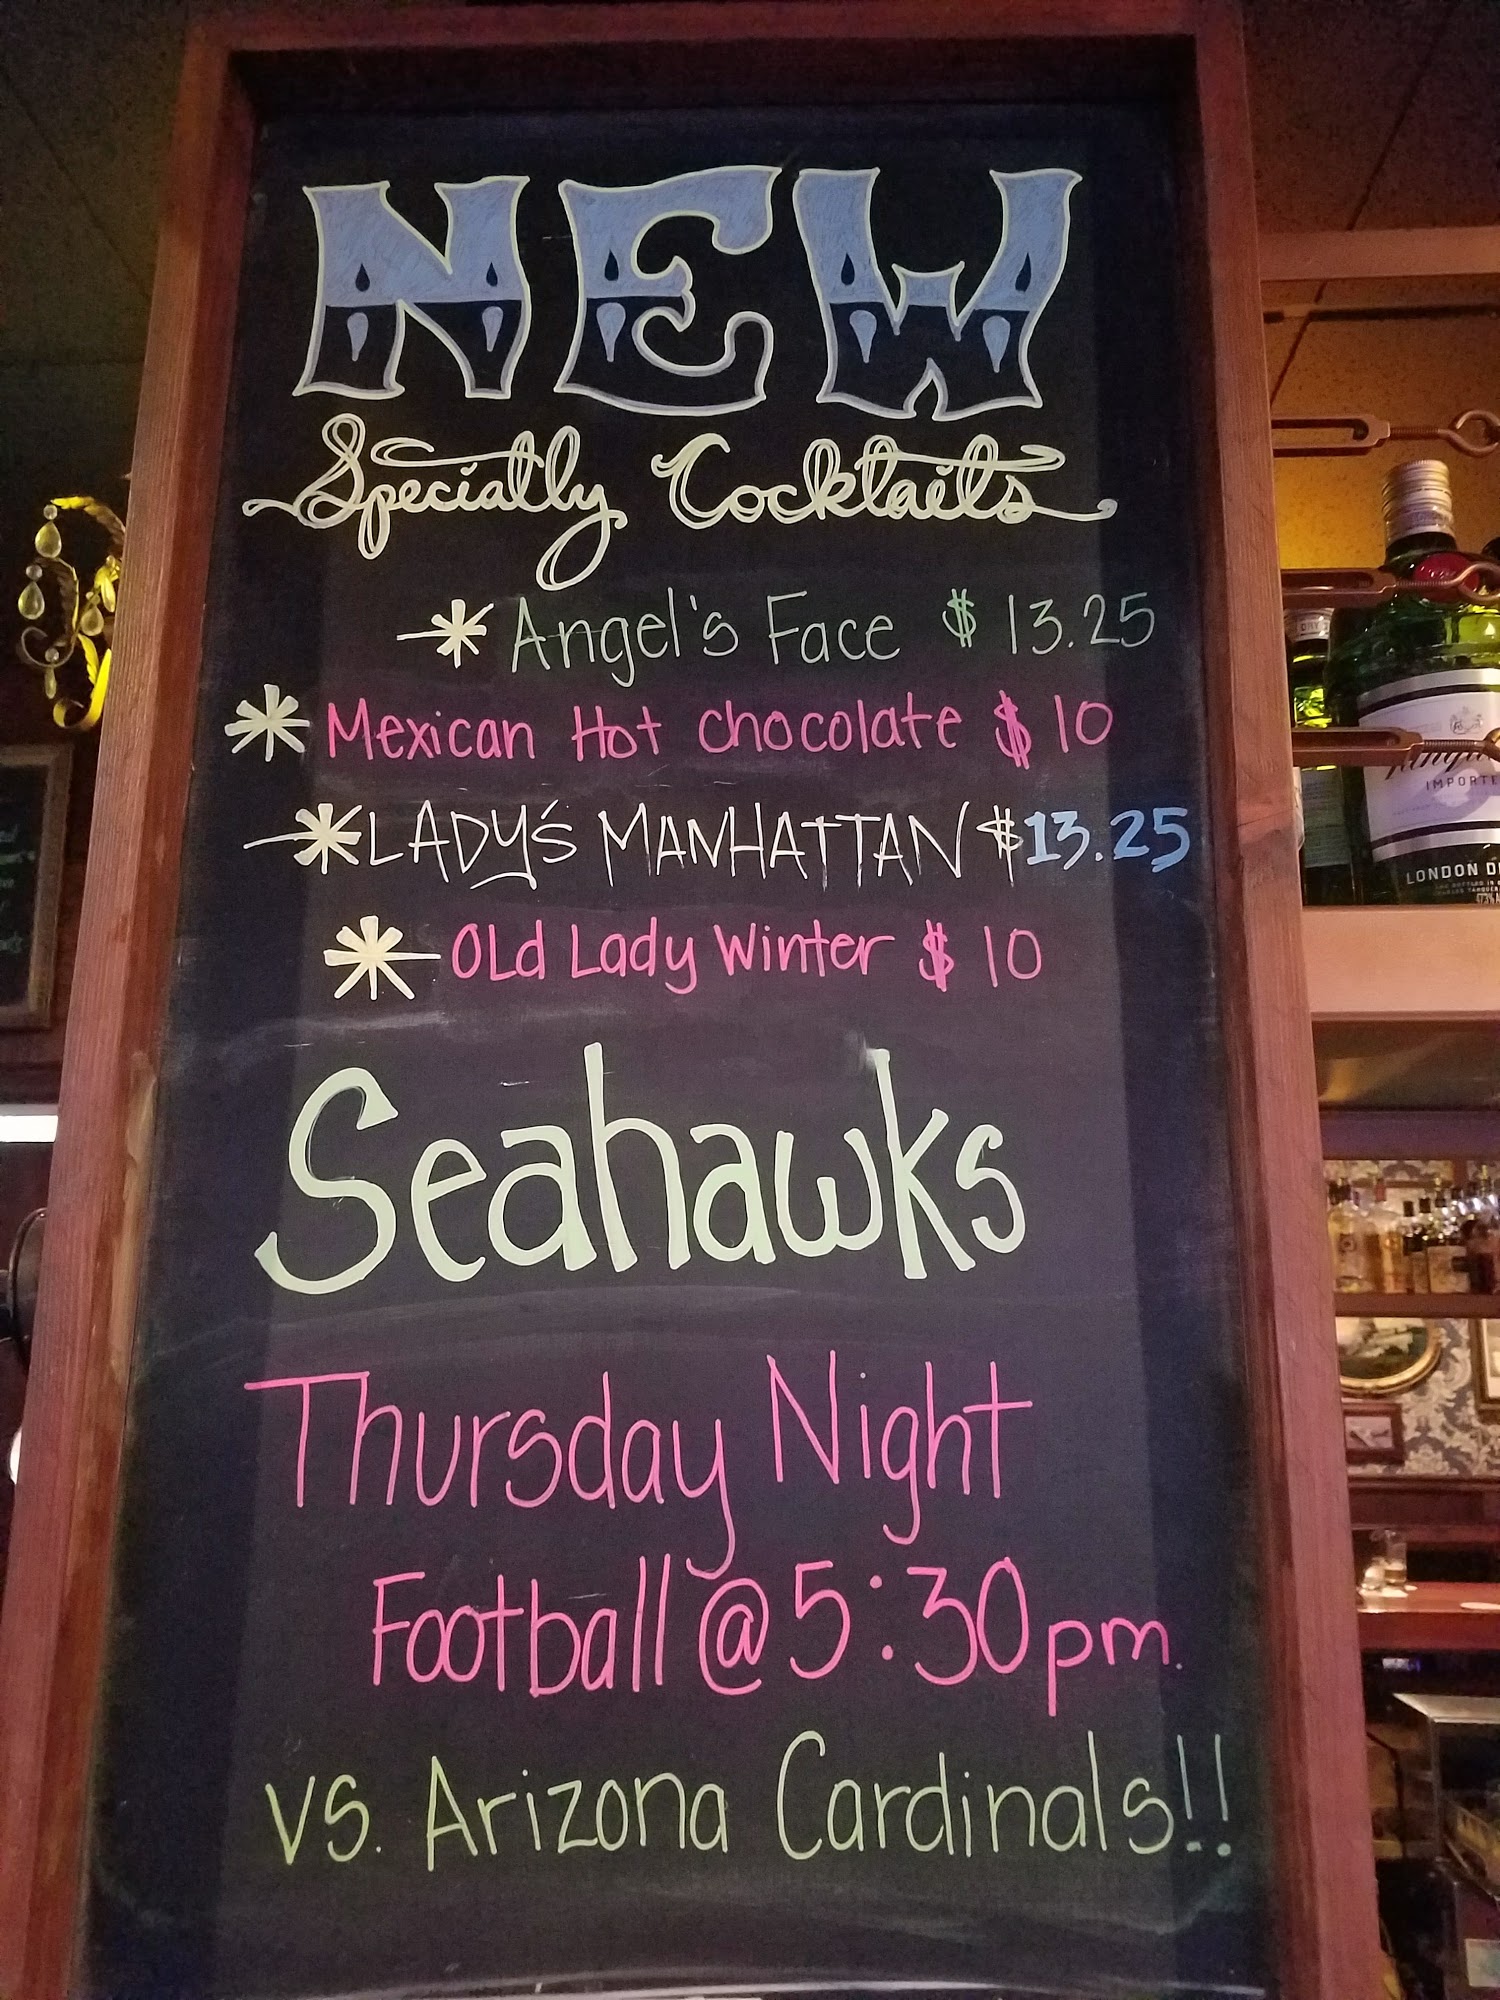 NEW
Specialty Cocktails
Angel's Face $ 13.25
Mexican Hot Chocolate $ 10
LADY'S MANHATTAN $13.25
OLd Lady Winter $ 10
Seahawks
Thursday Night
Football @ 5:30pm.
vs. Arizona Cardinals!!
IMPORTE
LONDON D